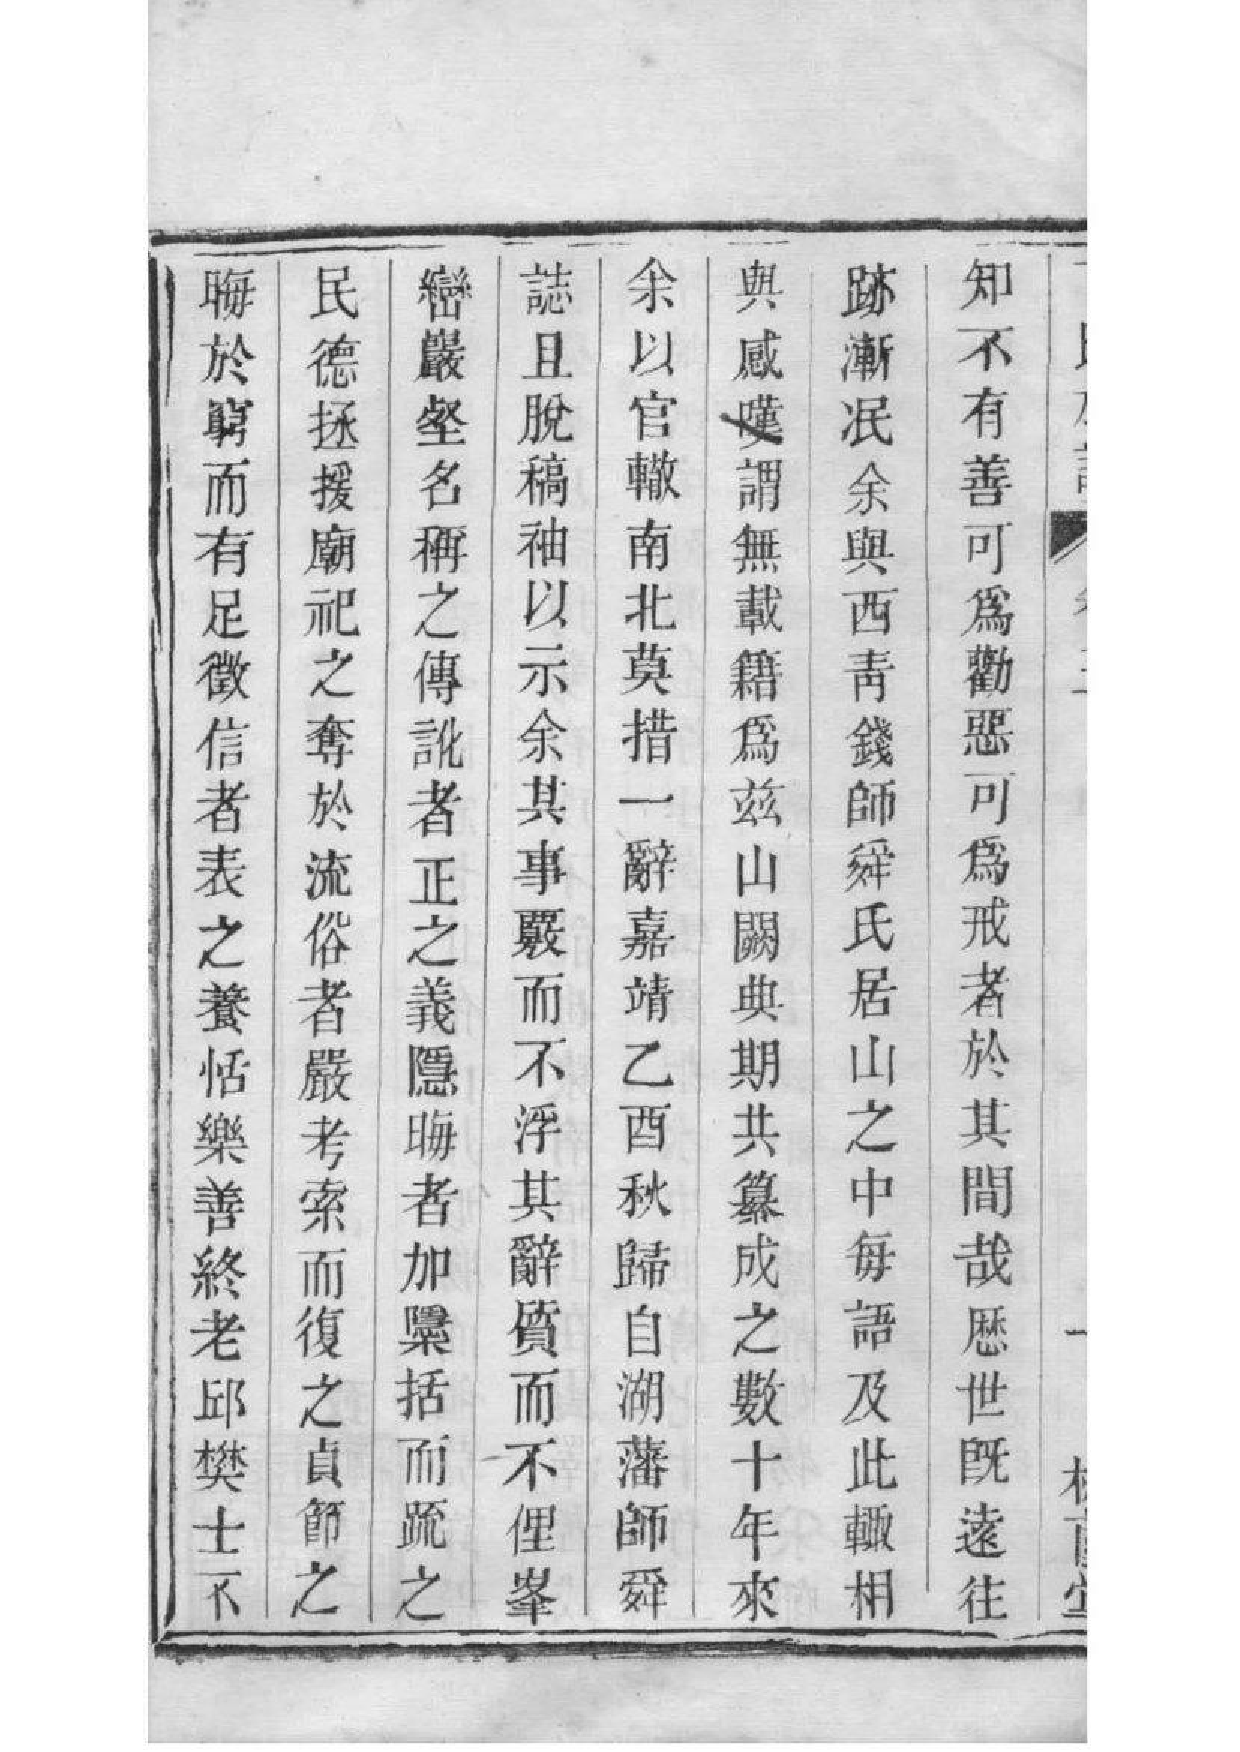 知不有善可爲勸惡可爲戒者於其間哉歷世旣遠往
跡漸泯余與西靑錢師舜氏居山之中每語及此輙相
與感嘆謂無載籍爲茲山闕典期共纂成之數十年來
余以官轍南北莫措一辭嘉靖乙酉秋歸自湖藩師舜
誌且脫稿袖以示余其事覈而不浮其辭質而不俚峯
巒巖壑名稱之傳訛者正之義隱晦者加檃括而䟽之
民德拯援廟祀之奪於流俗者嚴考索而復之貞節之
晦於窮而有足徵信者表之養恬樂善終老邱樊士不